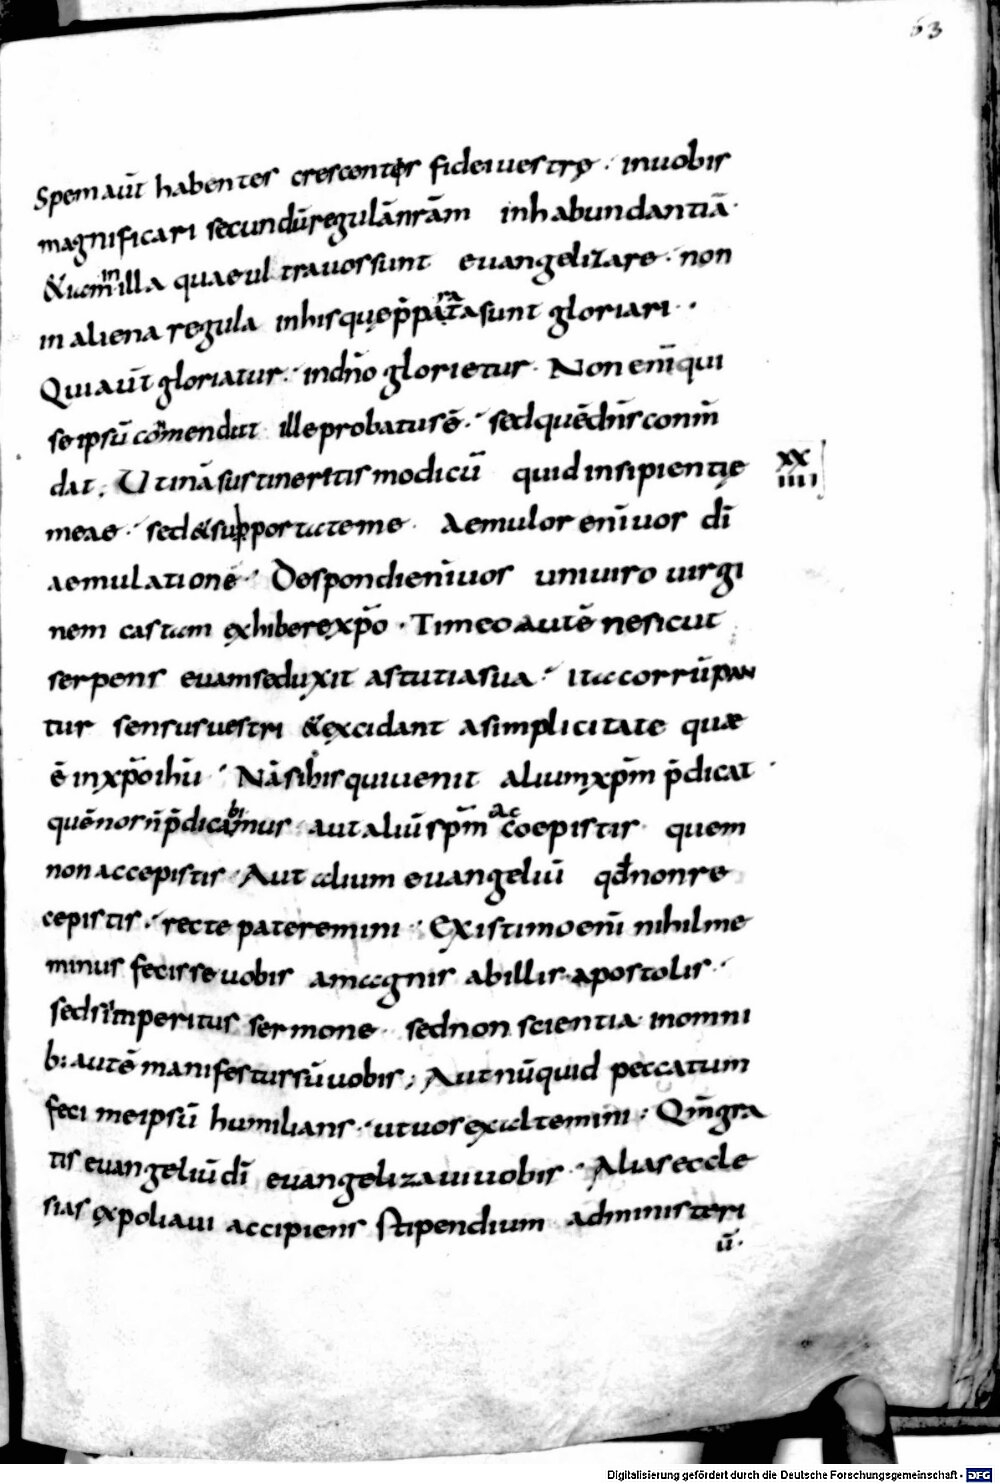 63
Spem aūt habentes crescentęs fidei uestrę · in uobis
magnificari secundū regulā nr̄am in habundantiā ·
& iam in illa quae ultra uos sunt euangelizare · non
in aliena regula in his quę p̄parata sunt gloriari ·
Qui aūt gloriatur · in dn̄o glorietur · Non enī qui
se ipsū cōmendat ille probatus ē · sed quē dn̄s conm̄
dat · Utinā sustineretis modicū quid insipientię
XX
IIII
meae · sed & supportate me · Aemulor enī uos dī
aemulationē · Despondi enī uos uni uiro uirgi
nem castam exhibere xp̄o · Timeo autē ne sicut
serpens euam seduxit astutia sua · ita corrūpan
tur sensus uestri & excidant a simplicitate quae
ē in xp̄o ihū · Nā si his qui uenit alium xp̄m p̄dicat ·
quē nos n̄ p̄dicabimus aut aliū sp̄m accoepistis quem
non accepistis · Aut alium euangeliū qđ non re
cepistis · recte pateremini · Existimo enī nihil me
minus fecisse uobis a magnis ab illis apostolis ·
sed si imperitus sermone sed non scientia in omni
b: autē manifestus sū uobis; Aut nūquid peccatum
feci me ipsū humilians · ut uos exaltemini · Qm̄ gra
tis euangeliū dī euangelizaui uobis · Alias eccle
sias expoliaui accipiens stipendium ad ministeri
ū ·
Digitalisierung gefördert durch die Deutsche Forschungsgemeinschaft - DFG